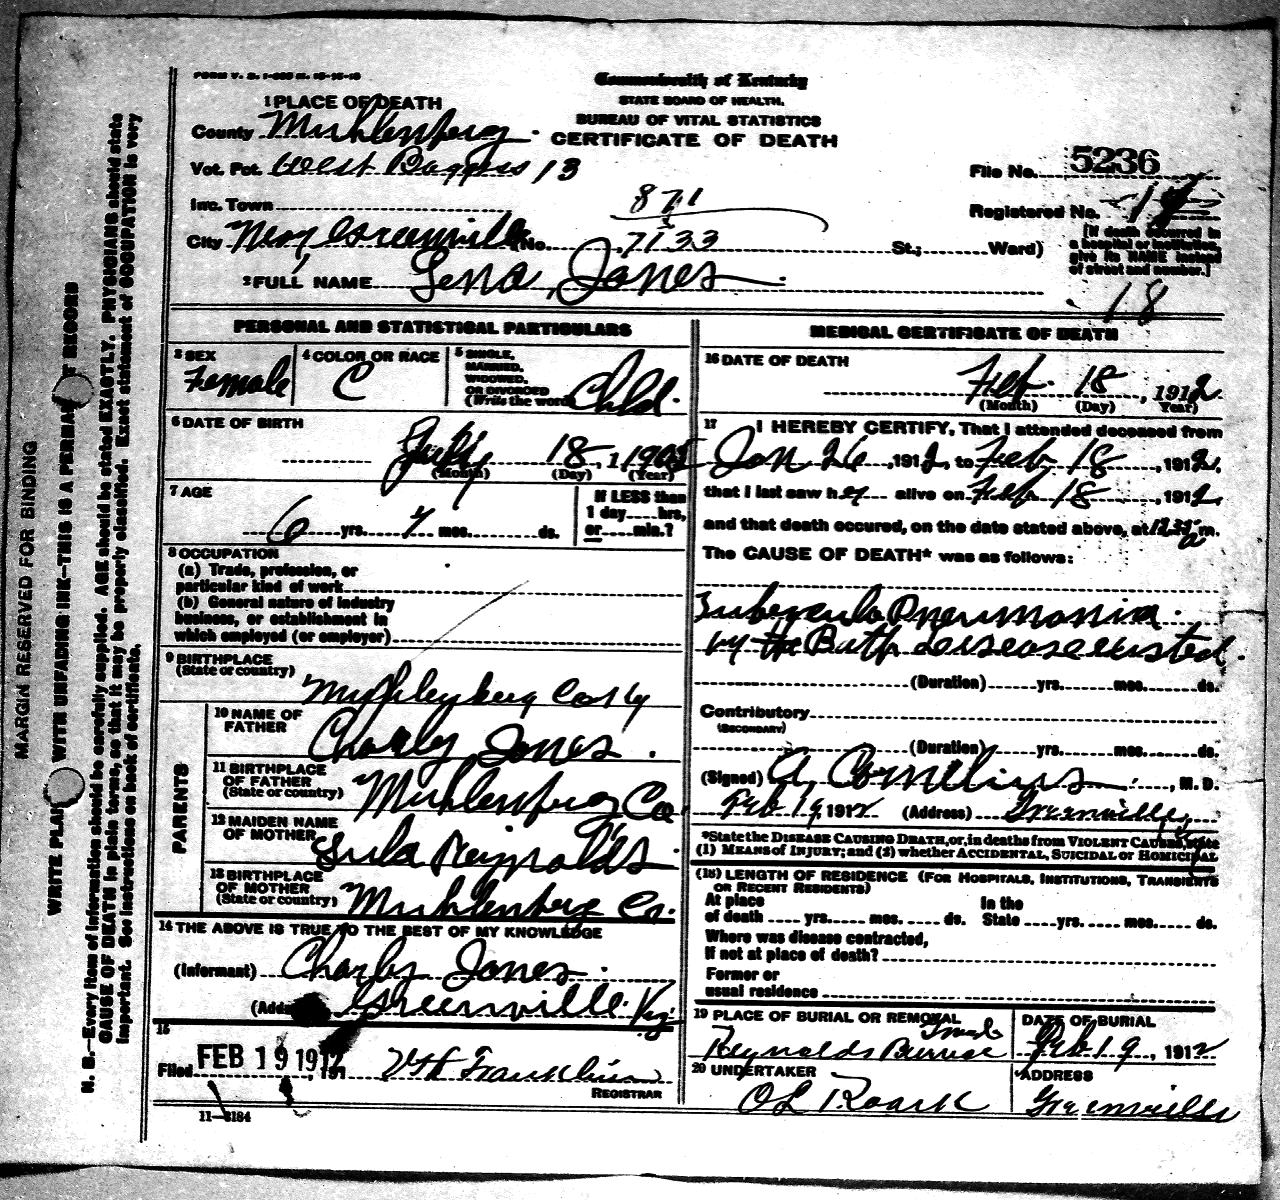 FORM V. S. 1-
Commonwealth of Kentucky
STATE BOARD OF HEALTH.
BUREAU OF VITAL STATISTICS
CERTIFICATE OF DEATH
1 PLACE OF DEATH
County Muhlenberg
Vot. Pct. West Boggess 13
Inc. Town
871
City Near Greenville No. 7133 St.; Ward)
File No. 5236
Registered No.
[If death occurred in
a hospital or institution,
give its NAME instead
of street and number.]
18
2 FULL NAME Lena Jones
PERSONAL AND STATISTICAL PARTICULARS
3 SEX
Female
4 COLOR OR RACE
C
5 SINGLE,
MARRIED,
WIDOWED,
OR DIVORCED
(Write the word)
Child
6 DATE OF BIRTH
July 18, 1905
(Month) (Day) (Year)
7 AGE
6 yrs. 7 mos. ds.
If LESS than
1 day hrs,
or min.?
8 OCCUPATION
(a) Trade, profession, or
particular kind of work
(b) General nature of industry
business, or establishment in
which employed (or employer)
9 BIRTHPLACE
(State or country)
Muhlenberg Co Ky
PARENTS
10 NAME OF
FATHER
Charly Jones
11 BIRTHPLACE
OF FATHER
(State or country)
Muhlenberg Co
12 MAIDEN NAME
OF MOTHER
Lula Reynolds
13 BIRTHPLACE
OF MOTHER
(State or country)
Muhlenberg Co.
14 THE ABOVE IS TRUE TO THE BEST OF MY KNOWLEDGE
(Informant) Charly Jones
(Add Greenville Ky
15
Filed FEB 19 1912, 191
REGISTRAR
11-3184
MEDICAL CERTIFICATE OF DEATH
16 DATE OF DEATH
Feb 18, 1912
(Month) (Day) Year)
17 I HEREBY CERTIFY, That I attended deceased from
Jan 26, 1912, to Feb 18, 1912,
that I last saw her alive on Feb 18, 1912,
and that death occured, on the date stated above, at m.
The CAUSE OF DEATH* was as follows:
Pneumonia
disease existed.
(Duration) yrs. mos. ds.
Contributory
(SECONDARY)
(Duration) yrs. mos. ds.
(Signed) A Cornelius, M. D.
Feb 19, 1912 (Address) Greenville
*State the DISEASE CAUSING DEATH, or, in deaths from VIOLENT CAUSES, state
(1) MEANS OF INJURY; and (2) whether ACCIDENTAL, SUICIDAL or HOMICIDAL
(18) LENGTH OF RESIDENCE (FOR HOSPITALS, INSTITUTIONS, TRANSIENTS
OR RECENT RESIDENTS)
At place
of death yrs. mos. ds.
In the
State yrs. mos. ds.
Where was disease contracted,
If not at place of death?
Former or
usual residence
19 PLACE OF BURIAL OR REMOVAL
Reynolds
DATE OF BURIAL
Feb 19, 1912
20 UNDERTAKER
OL Roark
ADDRESS
Greenville
MARGIN RESERVED FOR BINDING
WRITE PLAI WITH UNFADING INK—THIS IS A PERMA RECORD
N. B.—Every item of information should be carefully supplied. AGE should be stated EXACTLY. PHYSICIANS should state
CAUSE OF DEATH in plain terms, so that it may be properly classified. Exact statement of OCCUPATION is very
important. See instructions on back of certificate.